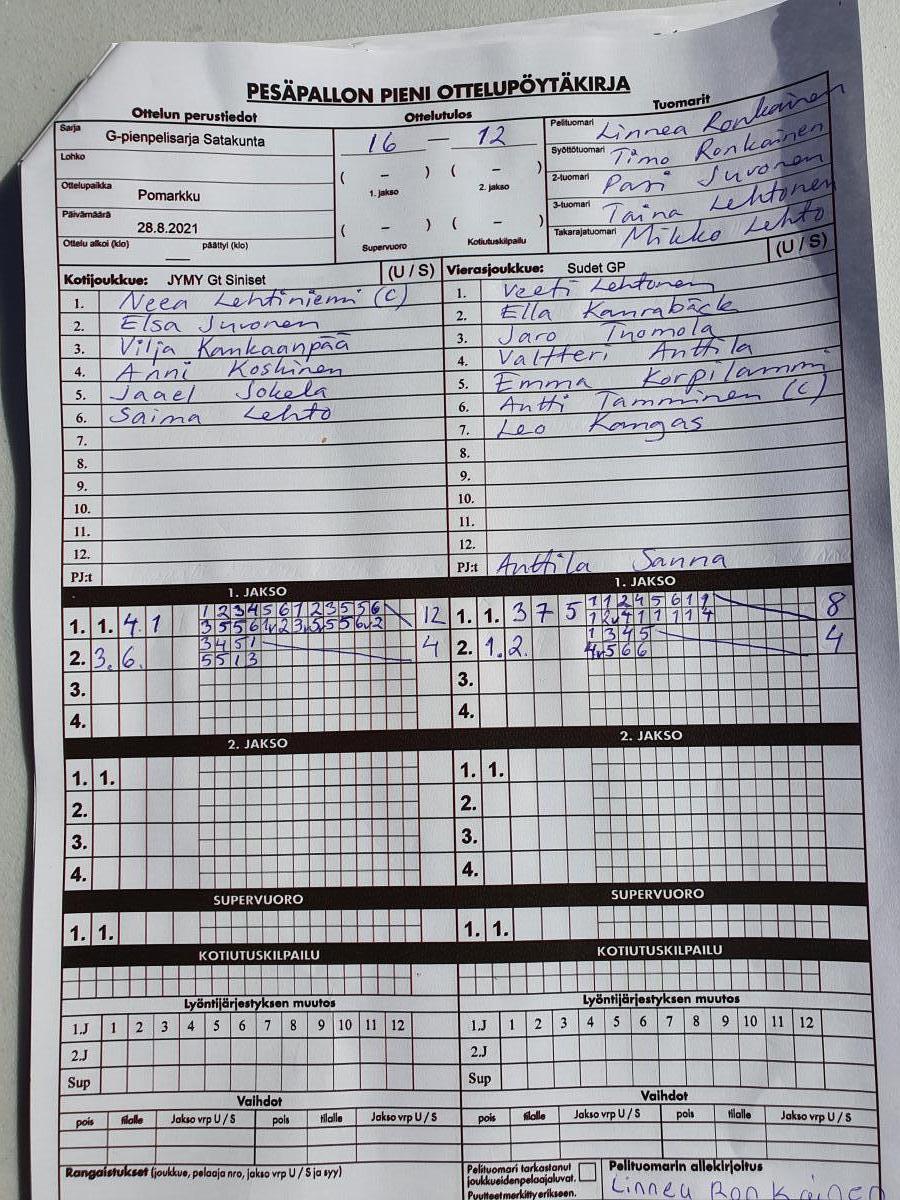 PESÄPALLON PIENI OTTELUPÖYTÄKIRJA
Ottelun perustiedot
Sarja G-pienpelisarja Satakunta
Lohko
Ottelupaikka Pomarkku
Päivämäärä 28.8.2021
Ottelu alkoi (klo) päättyi (klo)
Ottelutulos
16 — 12
( – ) ( – )
1. jakso 2. jakso
( – ) ( – )
Supervuoro Kotiutuskilpailu
Tuomarit
Pelituomari Linnea Ronkainen
Syöttötuomari Timo Ronkainen
2-tuomari Pasi Juvonen
3-tuomari Taina Lehtonen
Takarajatuomari Mikko Lehto
Kotijoukkue: JYMY Gt Siniset (U / S)
1. Neea Lehtiniemi (c)
2. Elsa Juvonen
3. Vilja Kankaanpää
4. Anni Koskinen
5. Jaael Jokela
6. Saima Lehto
7.
8.
9.
10.
11.
12.
PJ:t
Vierasjoukkue: Sudet GP (U / S)
1. Veeti Lehtonen
2. Ella Kanrabäck
3. Jaro Tuomola
4. Valtteri Anttila
5. Emma Korpilammi
6. Antti Tamminen (c)
7. Leo Kangas
8.
9.
10.
11.
12.
PJ:t Anttila Sanna
1. JAKSO
1. 1. 4 1 12
1 2 3 4 5 6 1 2 3 5 5 6
2. 3. 6. 4
3 4 5 1
5 5 1 3
3.
4.
1. JAKSO
1. 1. 3 7 5 8
1 1 2 4 5 6 1 1
2. 1. 2. 4
1 3 4 5
3.
4.
2. JAKSO
1. 1.
2.
3.
4.
2. JAKSO
1. 1.
2.
3.
4.
SUPERVUORO
1. 1.
SUPERVUORO
1. 1.
KOTIUTUSKILPAILU
KOTIUTUSKILPAILU
Lyöntijärjestyksen muutos
1.J 1 2 3 4 5 6 7 8 9 10 11 12
2.J
Sup
Lyöntijärjestyksen muutos
1.J 1 2 3 4 5 6 7 8 9 10 11 12
2.J
Sup
Vaihdot
pois tilalle Jakso vrp U / S pois tilalle Jakso vrp U / S
Vaihdot
pois tilalle Jakso vrp U / S pois tilalle Jakso vrp U / S
Rangaistukset (joukkue, pelaaja nro, jakso vrp U / S ja syy)
Pelituomari tarkastanut
joukkueiden pelaajaluvat.
Puutteet merkitty erikseen.
Pelituomarin allekirjoitus
Linnea Ronkainen